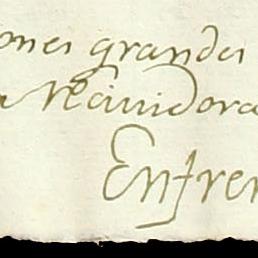 ones grandes
Recividora
Enfren